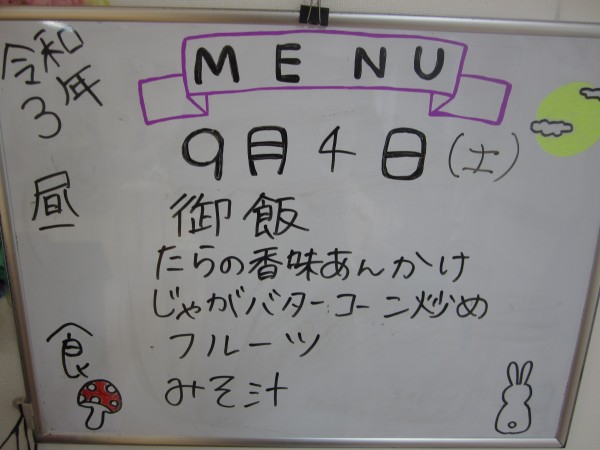 MENU
令和
3年
9月4日(土)
昼
食
御飯
たらの香味あんかけ
じゃがバターコーン炒め
フルーツ
みそ汁